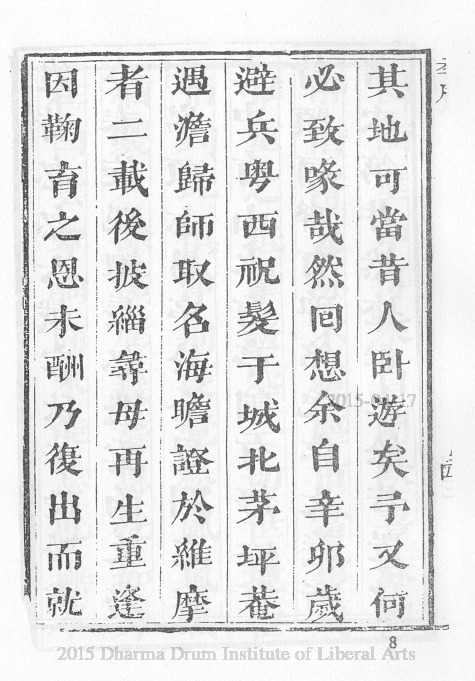 其地可當昔人卧遊矣予又何
必致喙哉然回想余自辛卯歲
避兵粤西祝髮于城北茅坪菴
遇澹歸師取名海瞻證於維摩
者二載後披緇尋母再生重逢
因鞠育之恩未酬乃復出而就
8
2015 Dharma Drum Institute of Liberal Arts